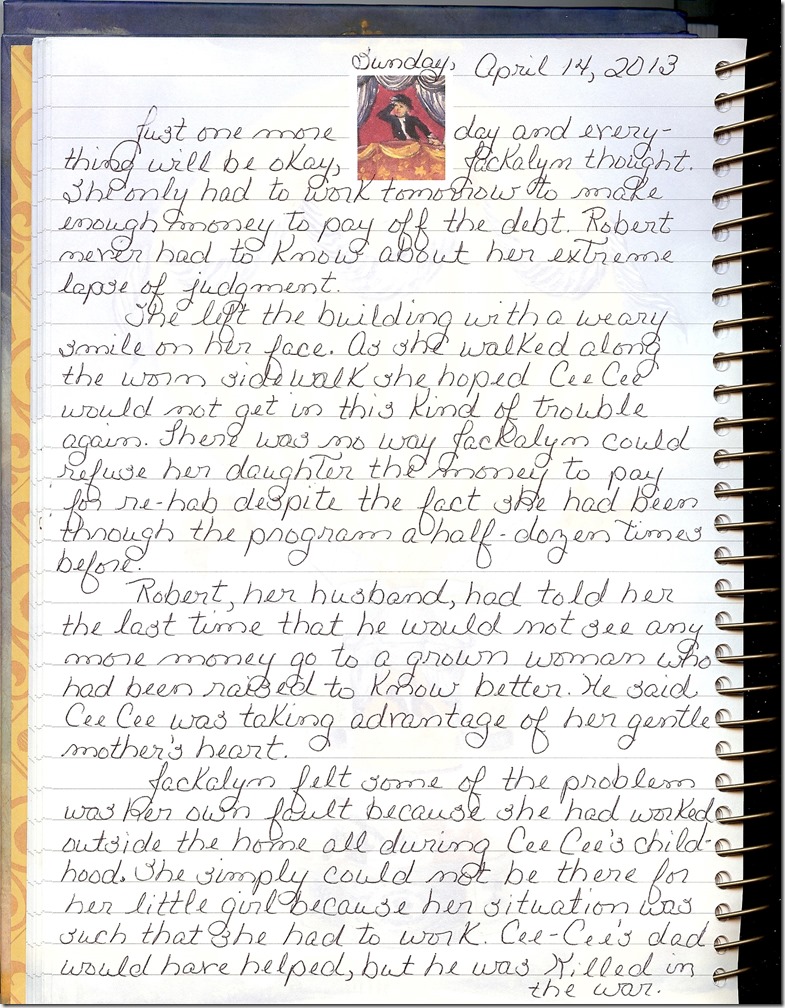 Sunday, April 14, 2013
Just one more day and every-
thing will be okay, Jackalyn thought.
She only had to work tomorrow to make
enough money to pay off the debt. Robert
never had to know about her extreme
lapse of judgment.
She left the building with a weary
smile on her face. As she walked along
the worn sidewalk she hoped CeeCee
would not get in this kind of trouble
again. There was no way Jackalyn could
refuse her daughter the money to pay
for re-hab despite the fact she had been
through the program a half-dozen times
before.
Robert, her husband, had told her
the last time that he would not see any
more money go to a grown woman who
had been raised to know better. He said
Cee Cee was taking advantage of her gentle
mother's heart.
Jackalyn felt some of the problem
was her own fault because she had worked
outside the home all during Cee Cee's child-
hood. She simply could not be there for
her little girl because her situation was
such that she had to work. Cee-Cee's dad
would have helped, but he was killed in
the war.